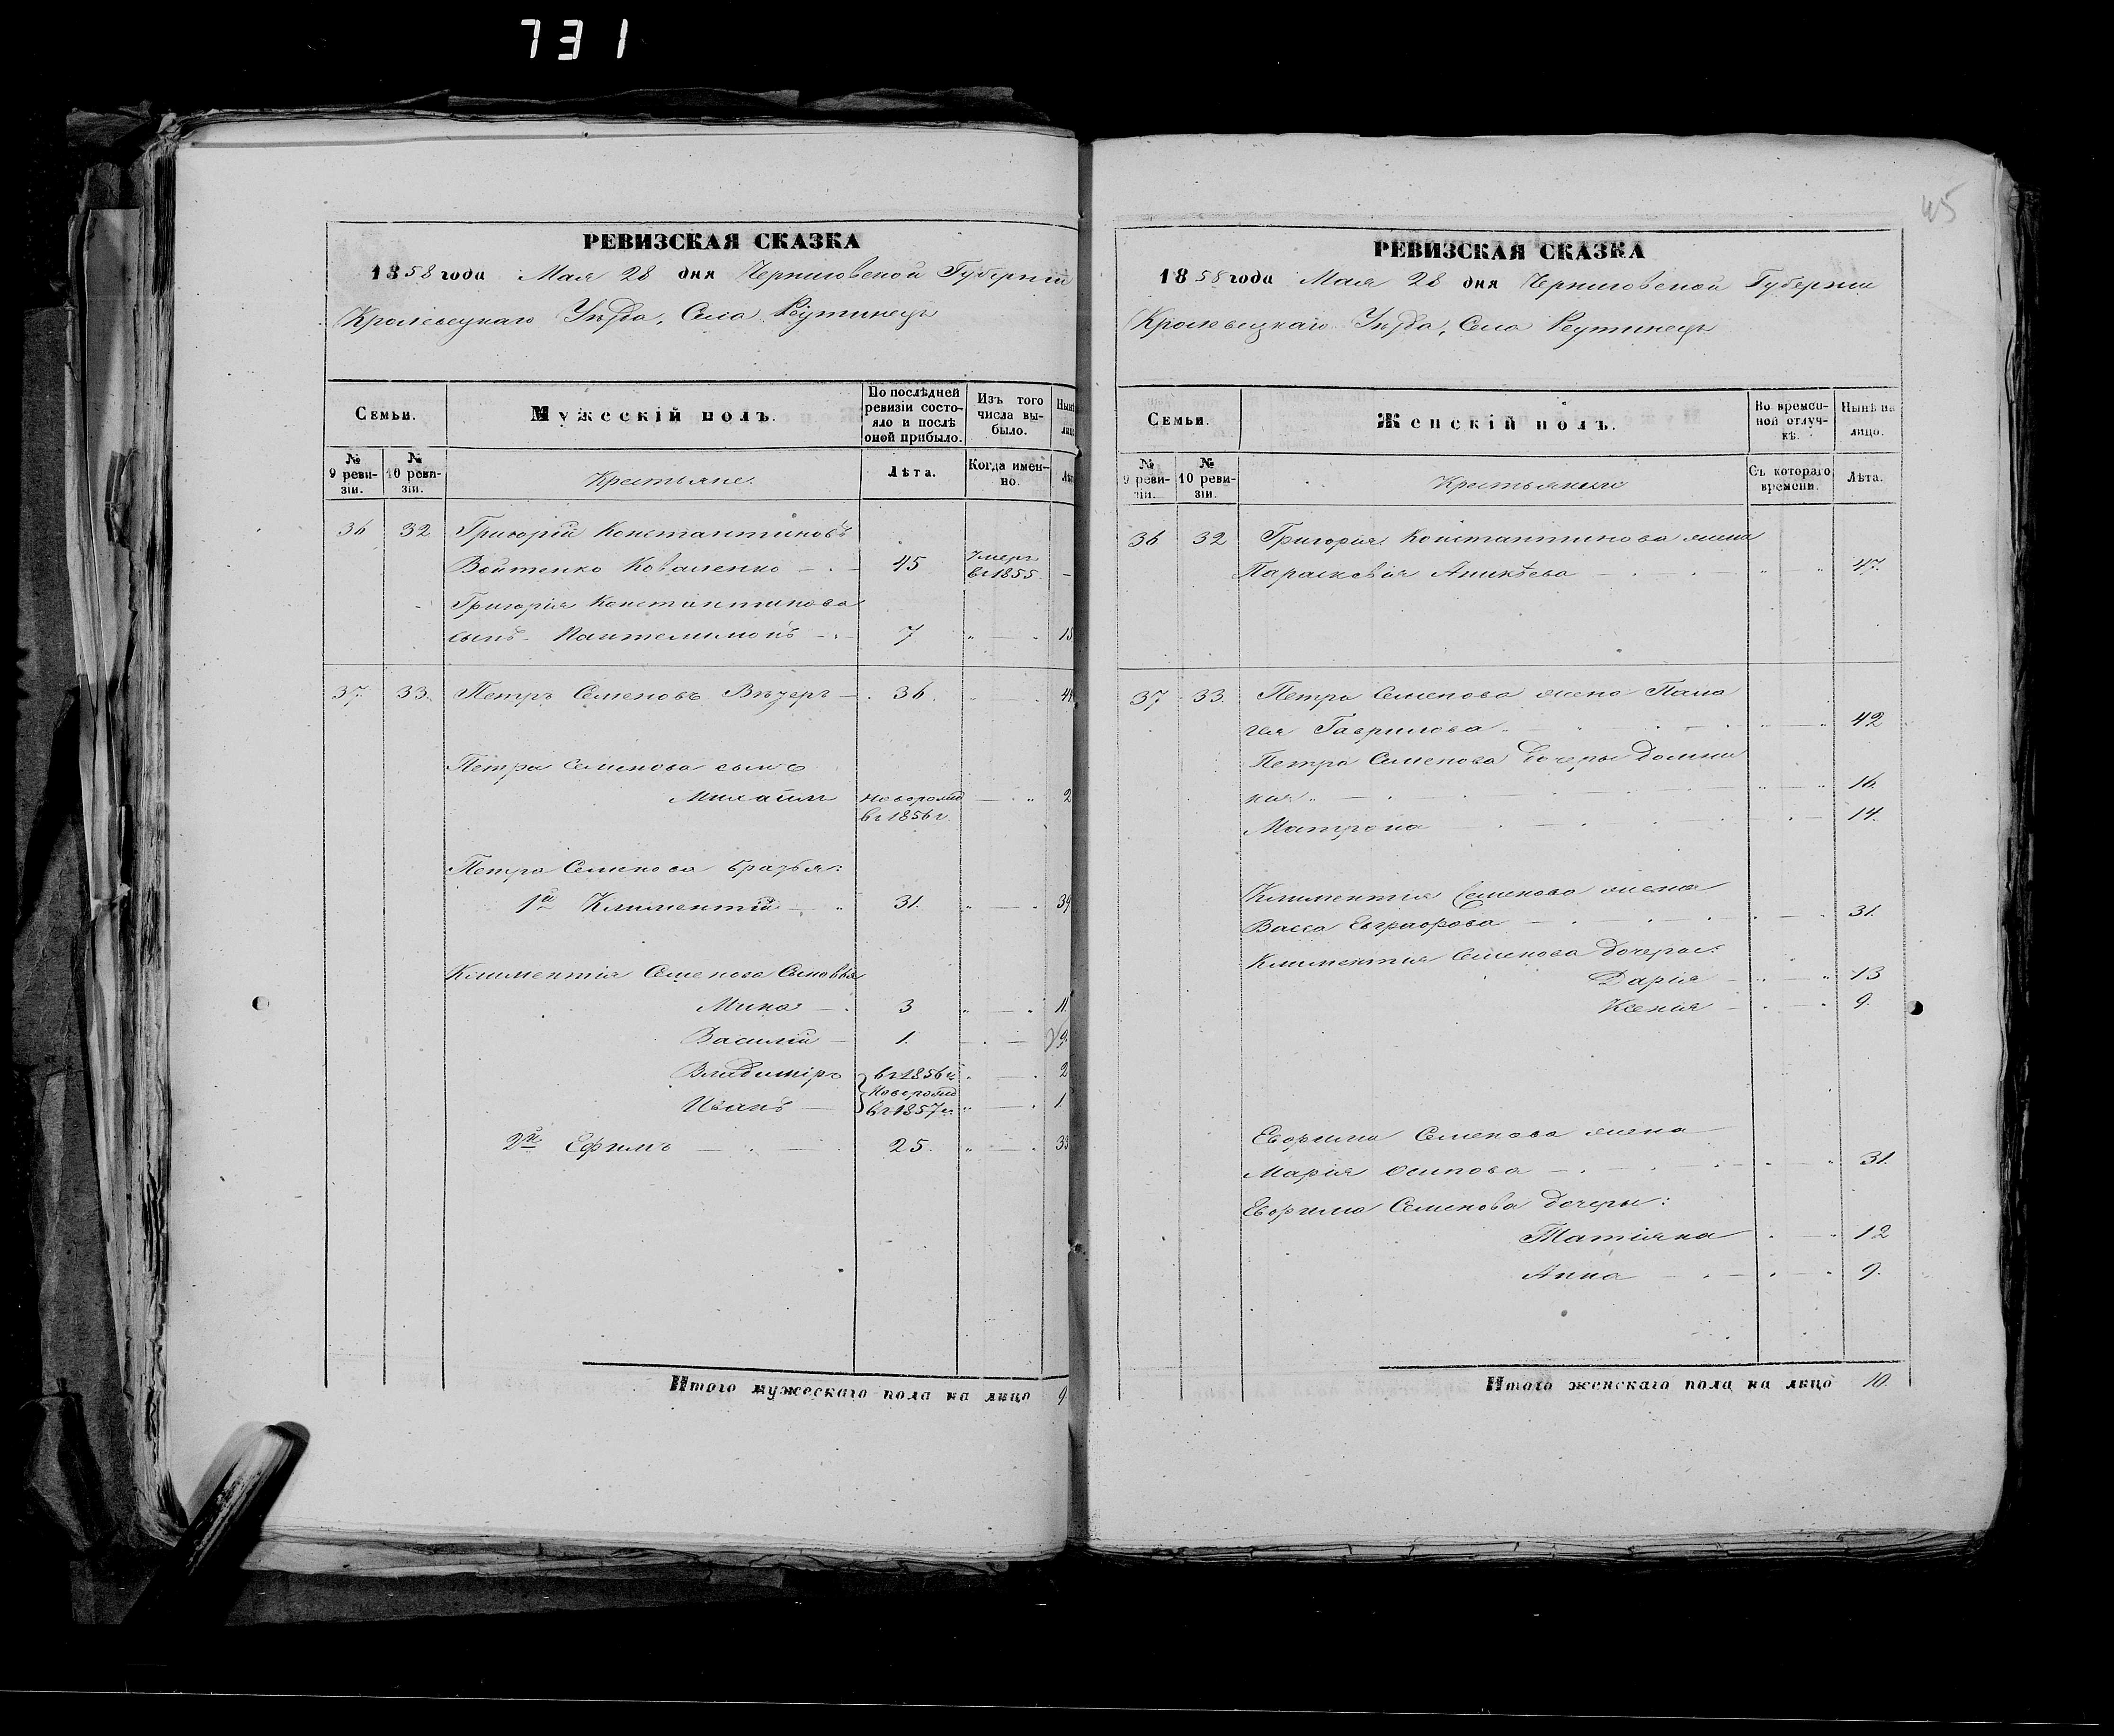 731
РЕВИЗСКАЯ СКАЗКА
1858 года Мая 28 дня Черниговской Губерніи
Кролевецкаго Уѣзда, Села Реутинецъ
Семьи.
Мужескій полъ.
По послѣдней ревизіи состояло и послѣ оной прибыло.
Изъ того числа выбыло.
№ 9 ревизіи.
№ 10 ревизіи.
Крестьяне.
Лѣта.
Когда именно.
36 32 Григорій Константиновъ
Войтенко Коваленко 45 Умеръ въ 1855 —
Григорія Константинова
сынъ Пантелимонъ 7 " — " 15
37. 33. Петръ Семеновъ 36. 44
Петра Семенова сынъ
Михаилъ новорожд въ 1856 г. — " 2
Петра Семенова братья:
1й Климентій 31. " — " 39
Климентія Семенова Сыновья
Мина 3 " — " 11.
Василій 1. " — 9
Владиміръ въ 1856 г. " — " 2
Иванъ Новорожд въ 1857 г. " — " 1.
2й Ефимъ 25. " — " 33
Итого мужескаго пола на лицо 9
45
РЕВИЗСКАЯ СКАЗКА
1858 года Мая 28 дня Черниговской Губерніи
Кролевецкаго Уѣзда, Села Реутинецъ
Семьи.
Женскій полъ.
Во временной отлучкѣ.
Нынѣ на лицо.
№ 9 ревизіи.
№ 10 ревизіи.
Съ котораго времени.
Лѣта.
36 32 Григорія Константинова жена
Параскевія Аникѣева " — " 47.
37 33. Петра Семенова жена Пела
гея Гаврилова " — " 42
Петра Семенова дочеры Домни
кія " — " 16.
Матрона " — 14.
Климентія Семенова жена
Васса Евграфова " — " 31.
Климентія Семенова дочеры:
Дарія " — " 13
Ксенія " — " 9.
Евфима Семенова жена
Марія Осипова " — " 31.
Евфима Семенова дочеры:
Татіяна " — " 12
Анна " — " 9.
Итого женскаго пола на лицо 10.